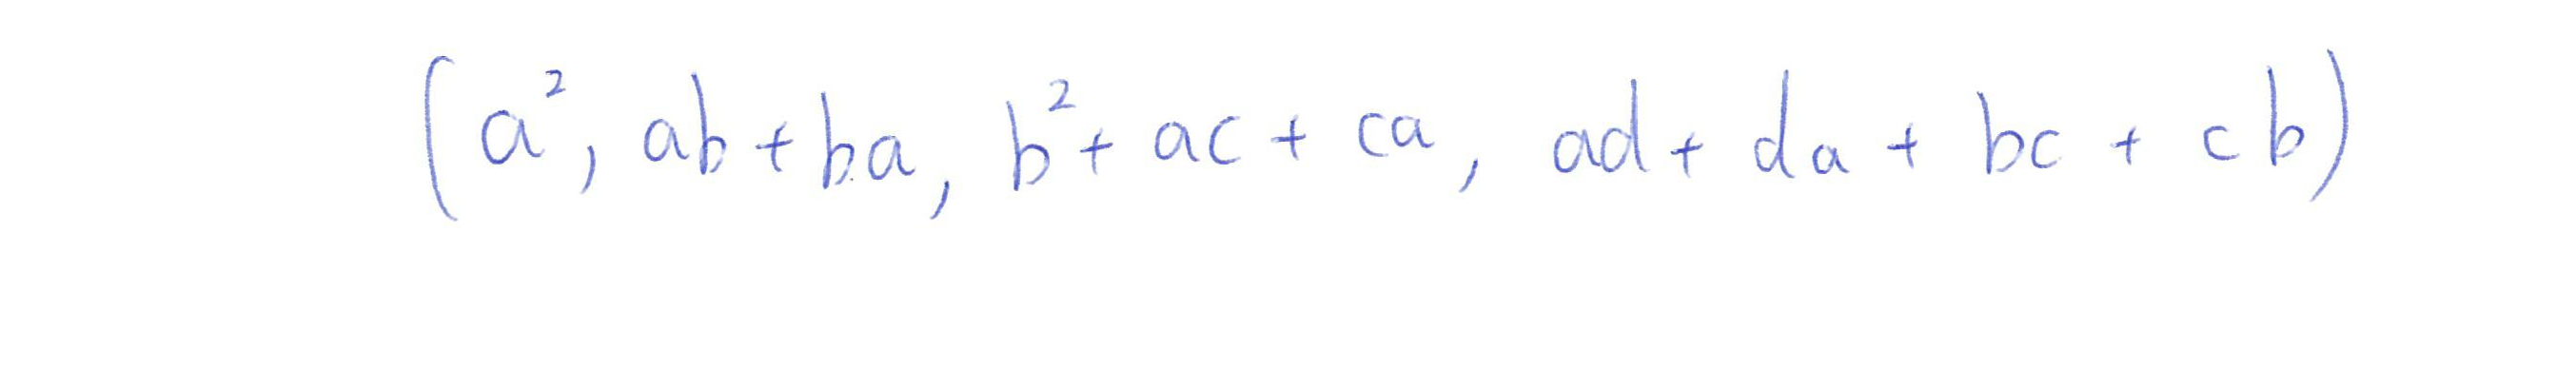 (a², ab + ba, b² + ac + ca, ad + da + bc + cb)